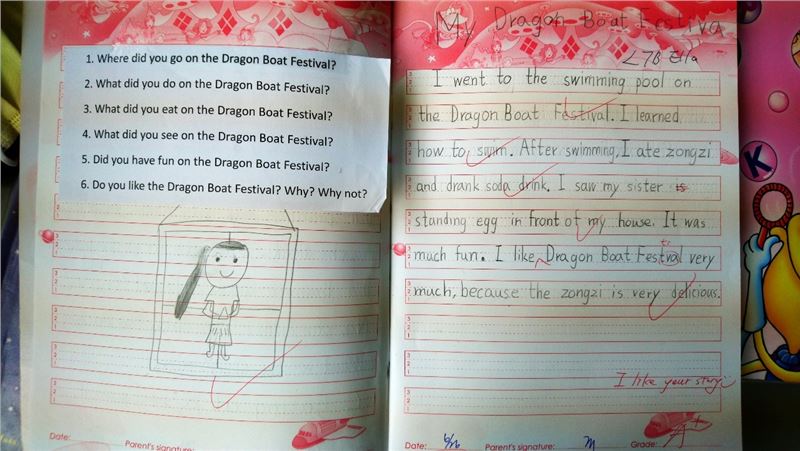 1. Where did you go on the Dragon Boat Festival?
2. What did you do on the Dragon Boat Festival?
3. What did you eat on the Dragon Boat Festival?
4. What did you see on the Dragon Boat Festival?
5. Did you have fun on the Dragon Boat Festival?
6. Do you like the Dragon Boat Festival? Why? Why not?
Date:
Parent's signature:
My Dragon Boat Festiva
L7B Ella
I went to the swimming pool on
the Dragon Boat Festival. I learned
how to swim. After swimming, I ate zongzi
and drank soda drink. I saw my sister is
standing egg in front of my house. It was
much fun. I like Dragon Boat Festval very
much, because the zongzi is very delicious.
I like your story
Date: 6/26 Parent's signature: Grade: A+
K